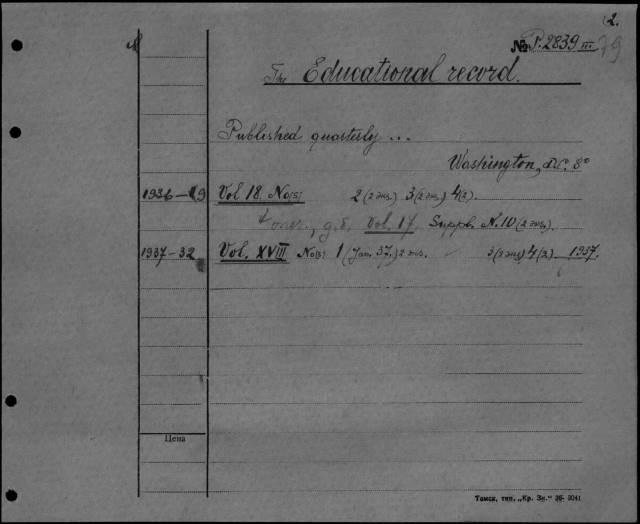 2.
№ P. 2839 III
79
The Educational record.
Published quarterly ...
Washington, D.C. 8°
1936- 9 Vol 18. No(s) 2 (2 экз.) 3 (2 экз.) 4 (2).
Vol. 17. Suppl. N. 10 (2 экз.)
1937-32 Vol. XVIII No(s) 1 (Jan. 37.) 2 экз. 3 (2 экз) 4 (2) 1937.
Цена
Томск, тип. „Кр. Зн." 36- 3041